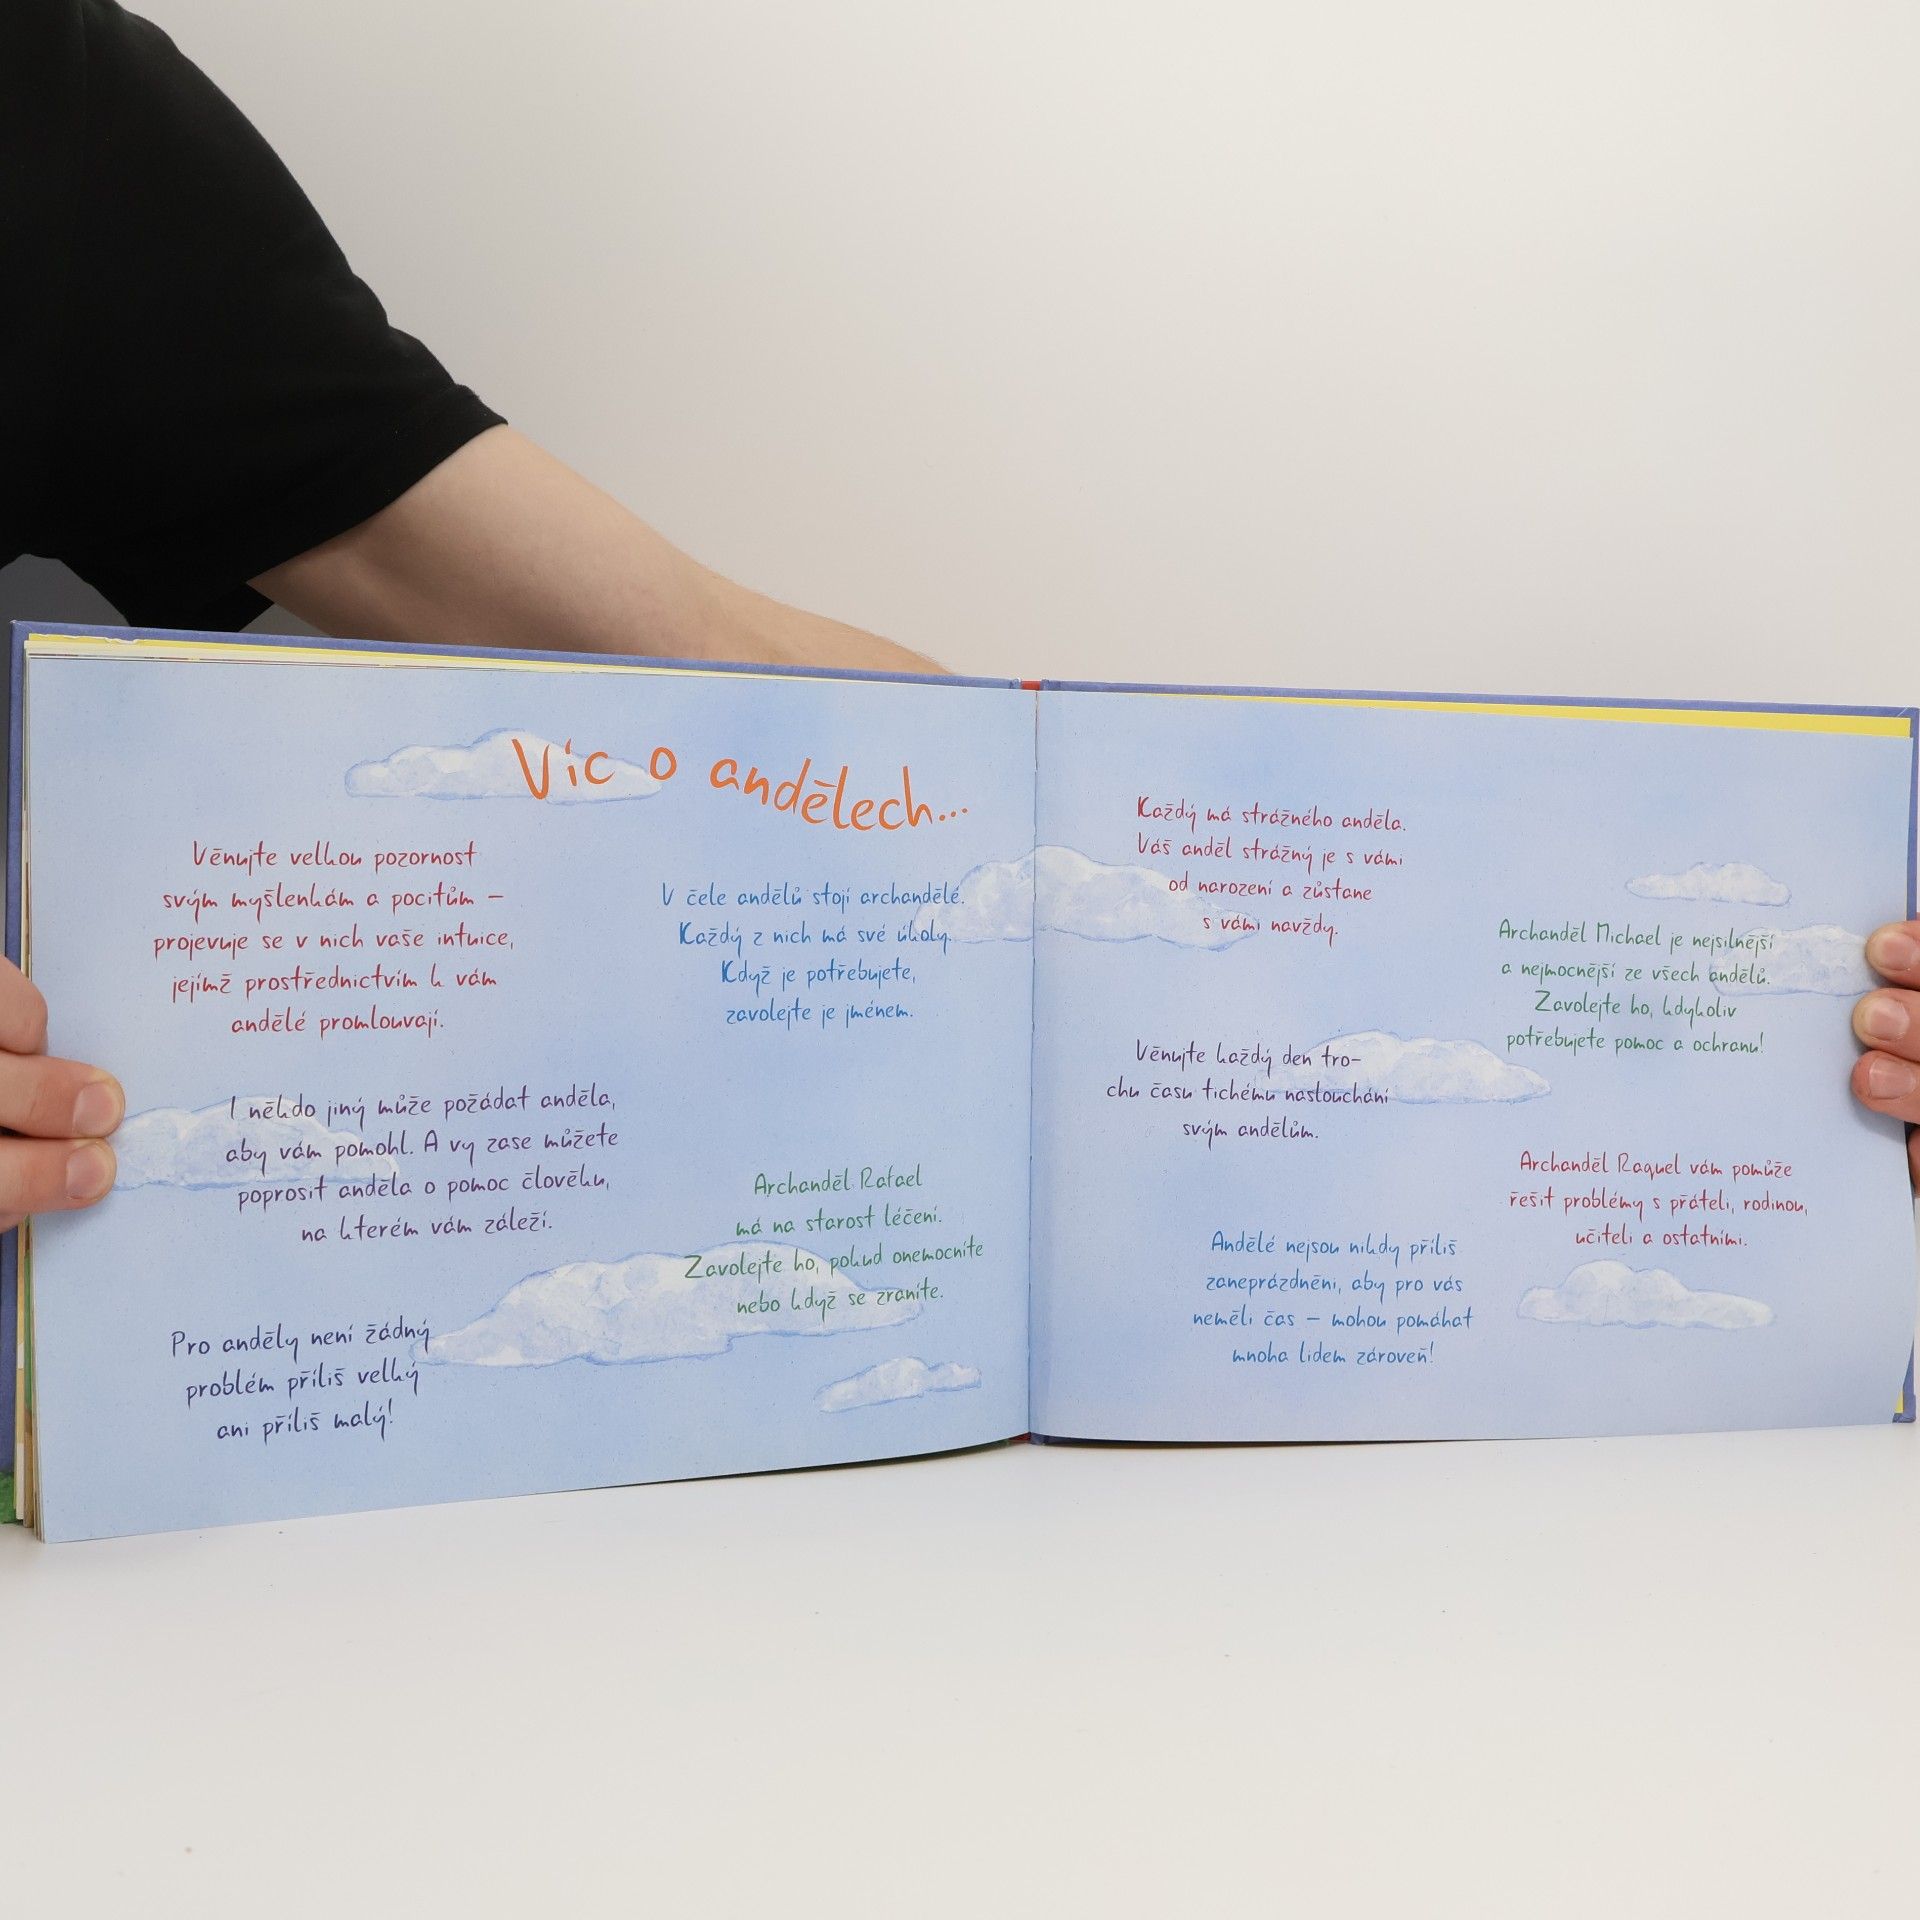 Víc o andělech...
Věnujte velkou pozornost
svým myšlenkám a pocitům –
projevuje se v nich vaše intuice,
jejímž prostřednictvím k vám
andělé promlouvají.
I někdo jiný může požádat anděla,
aby vám pomohl. A vy zase můžete
poprosit anděla o pomoc člověku,
na kterém vám záleží.
Pro anděly není žádný
problém příliš velký
ani příliš malý!
V čele andělů stojí archandělé.
Každý z nich má své úkoly.
Když je potřebujete,
zavolejte je jménem.
Archanděl Rafael
má na starost léčení.
Zavolejte ho, pokud onemocníte
nebo když se zraníte.
Každý má strážného anděla.
Váš anděl strážný je s vámi
od narození a zůstane
s vámi navždy.
Věnujte každý den tro-
chu času tichému naslouchání
svým andělům.
Andělé nejsou nikdy příliš
zaneprázdněni, aby pro vás
neměli čas – mohou pomáhat
mnoha lidem zároveň!
Archanděl Michael je nejsilnější
a nejmocnější ze všech andělů.
Zavolejte ho, kdykoliv
potřebujete pomoc a ochranu!
Archanděl Raguel vám pomůže
řešit problémy s přáteli, rodinou,
učiteli a ostatními.